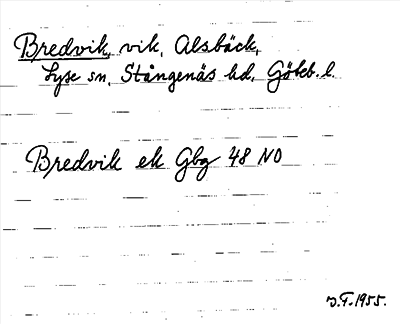 Bredvik, vik, Alsbäck,
Lyse sn, Stångenäs hd, Göteb. l.
Bredvik ek Gbg 48 NO
J.F. 1955.